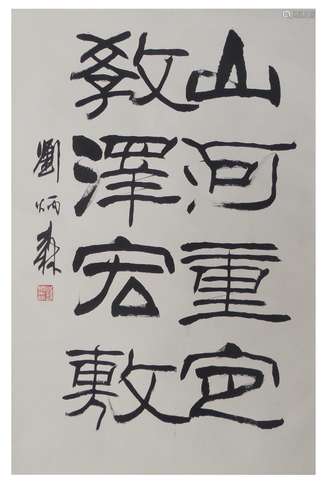 山河重定
教澤宏敷
劉炳森